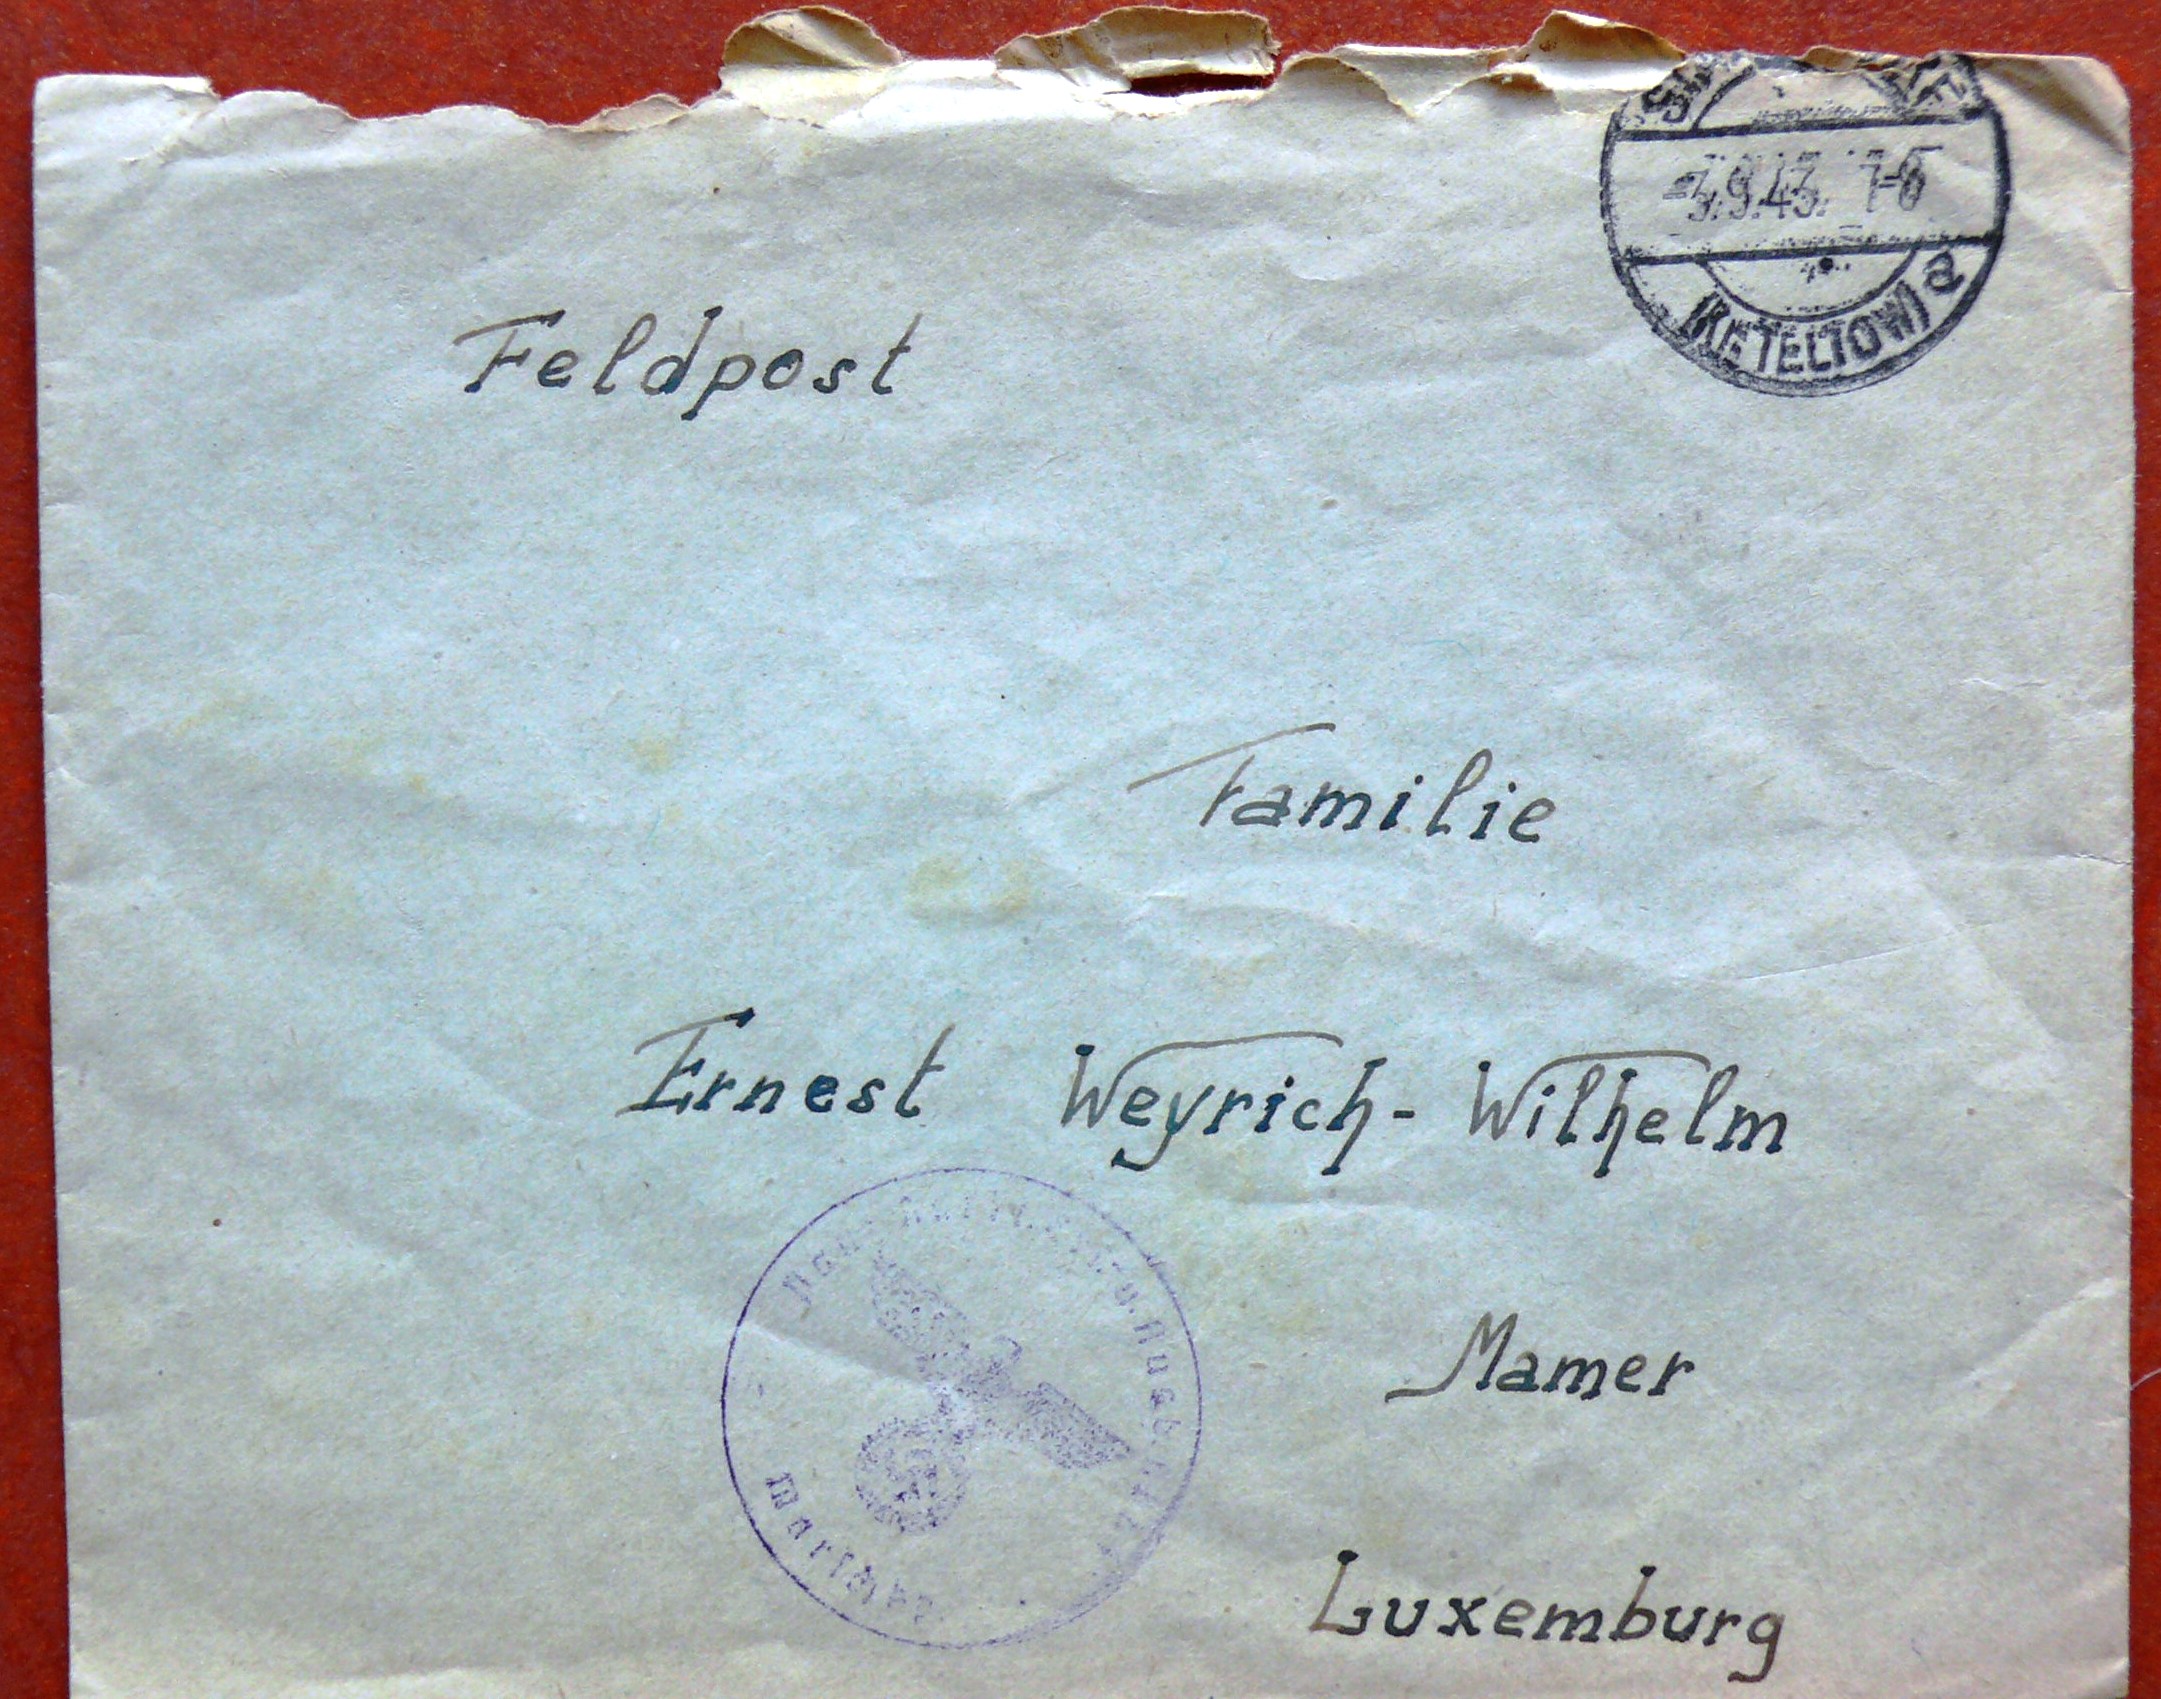 (KR. TELTOW) a
Feldpost
Familie
Ernest Weyrich-Wilhelm
Mamer
Luxemburg